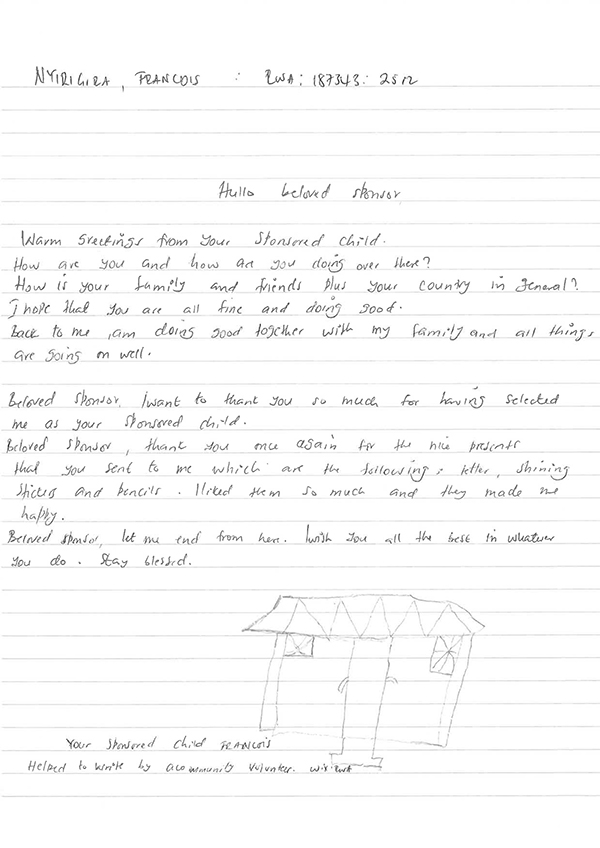 NYIRIGIRA, FRANCOIS : RWA: 187343: 2512
Hello beloved sponsor,
Warm greetings from your sponsored child.
How are you and how are you doing over there?
How is your family and friends plus your country in general?
I hope that you are all fine and doing good.
Back to me, am doing good together with my family and all things
are going on well.
Beloved sponsor, I want to thank you so much for having selected
me as your sponsored child.
Beloved sponsor, thank you once again for the nice presents
that you sent to me which are the following; letter, shining
stickers and pencils. I liked them so much and they made me
happy.
Beloved sponsor, let me end from here. I wish you all the best in whatever
you do. Stay blessed.
Your sponsored child FRANCOIS
Helped to write by a community volunteer.